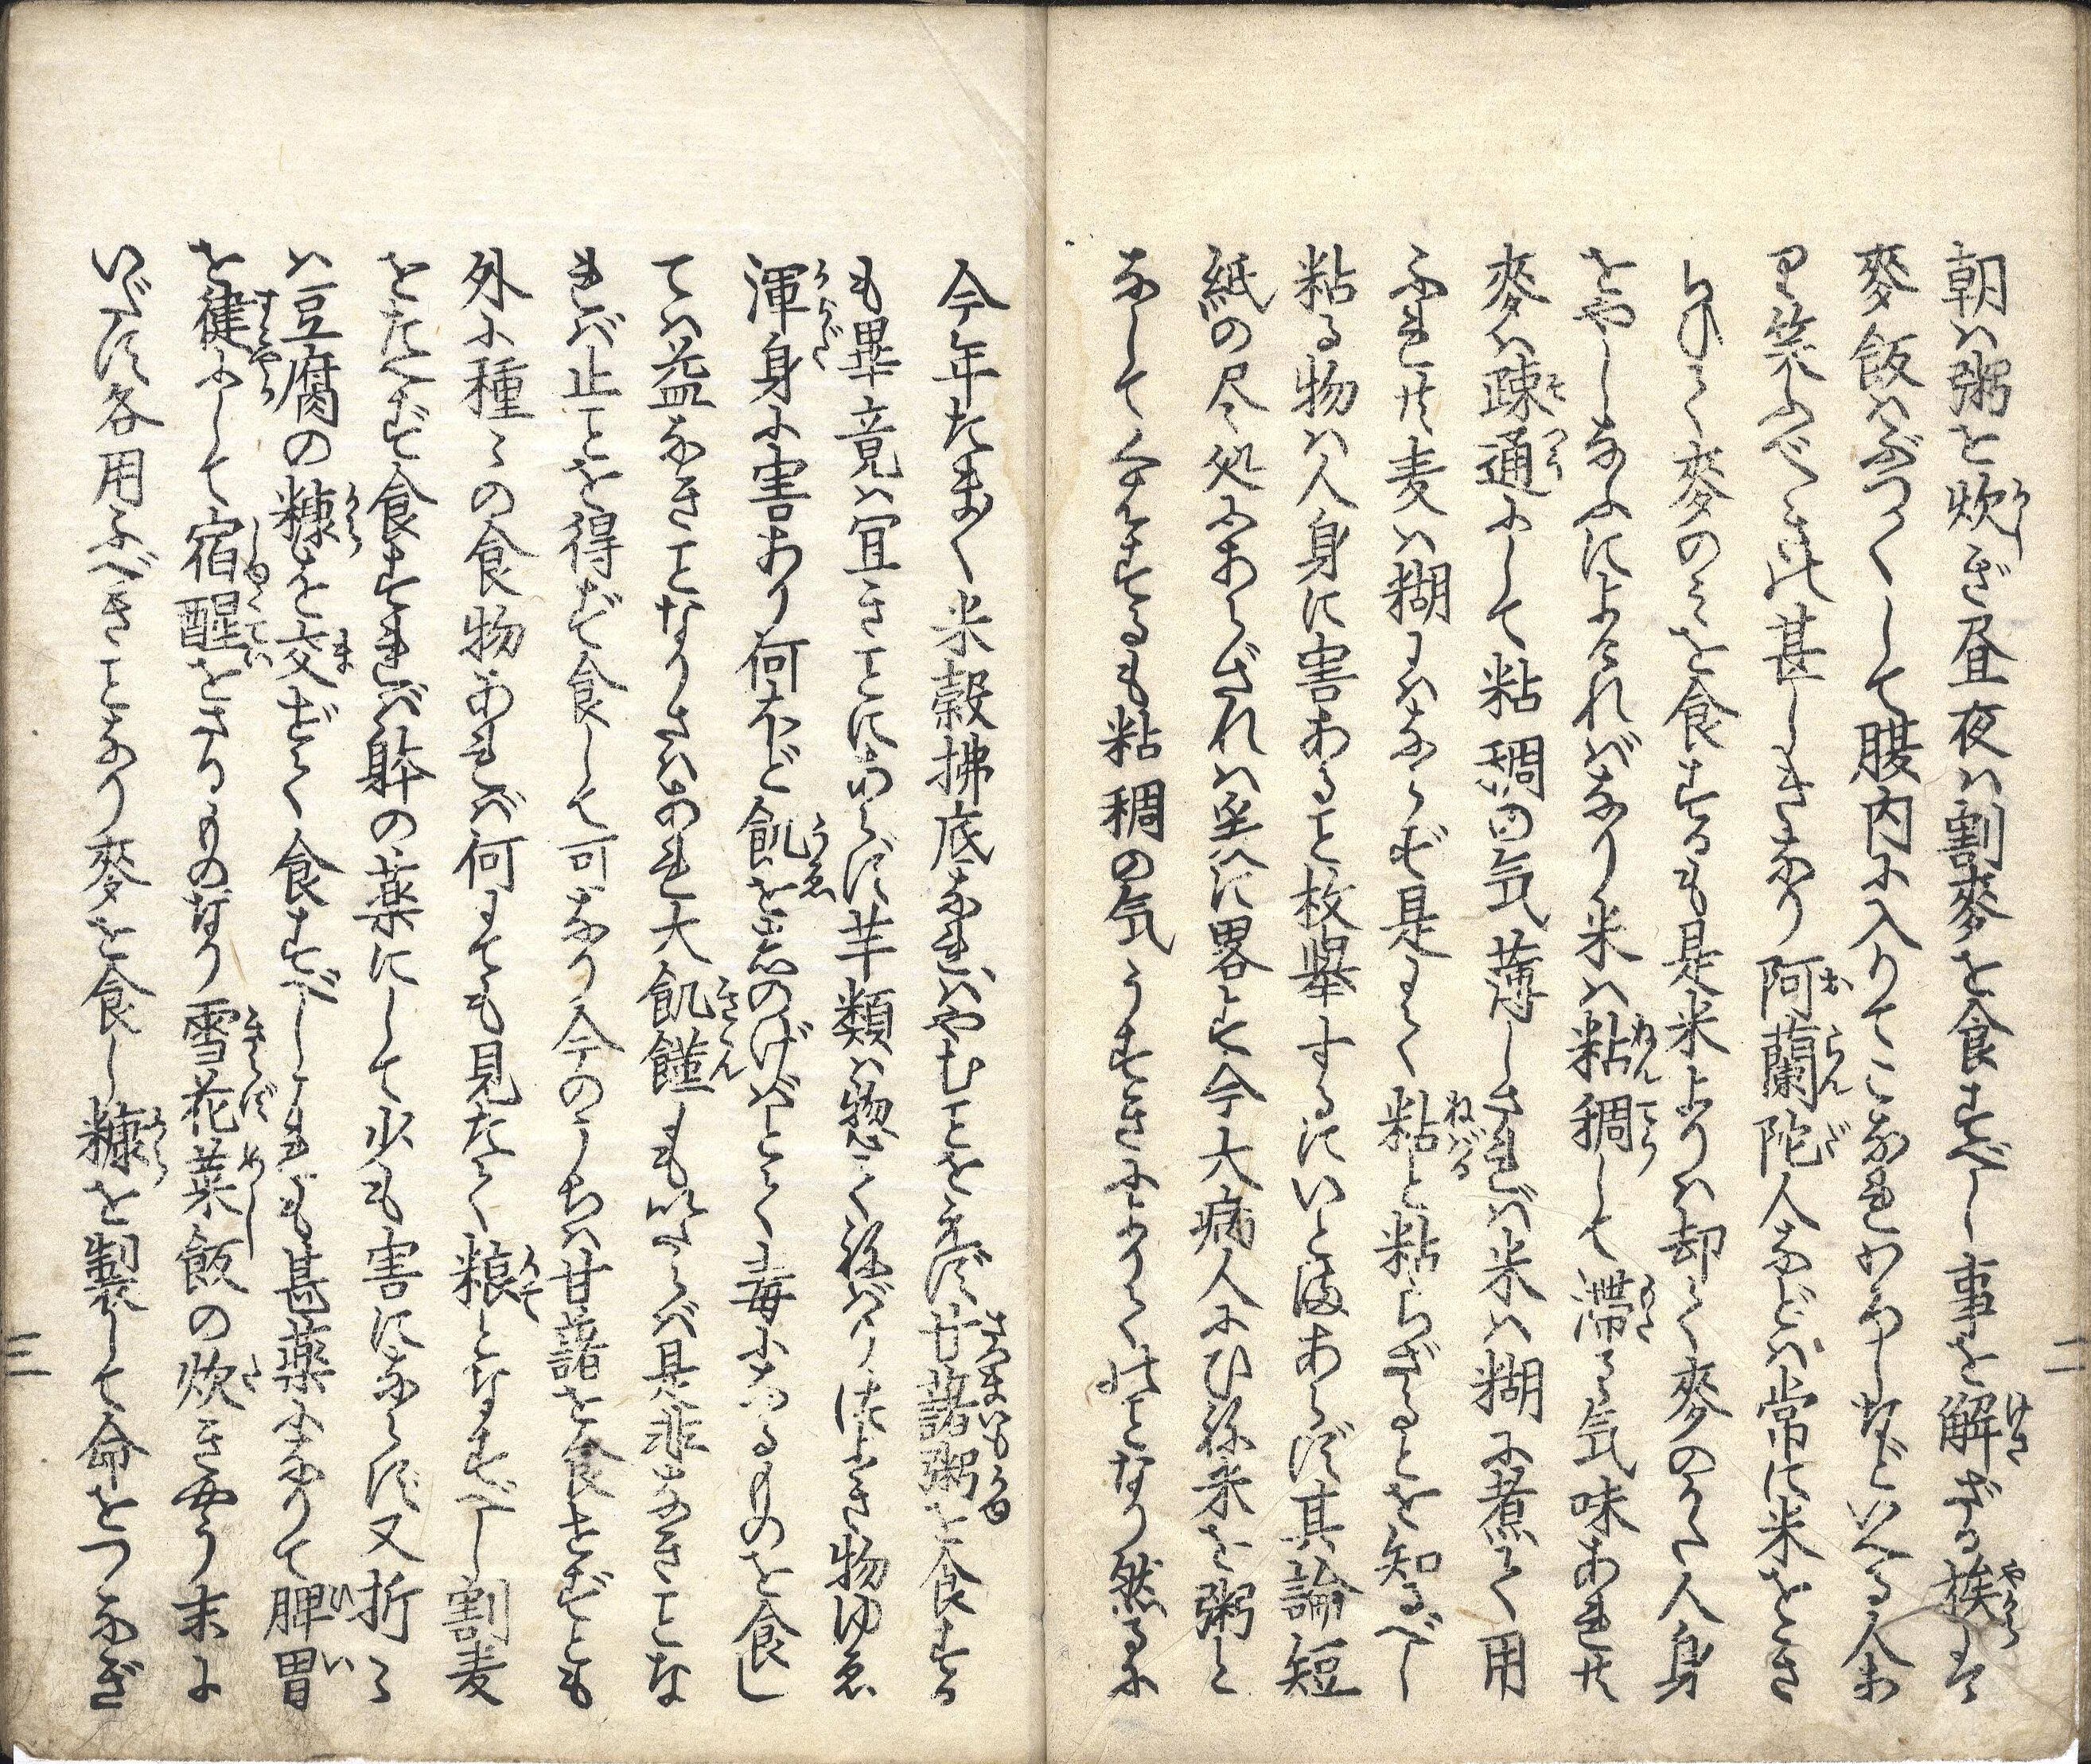 朝ハ粥を炊ぎ昼夜ハ割麥を食すべし事を解ざる族は
麥飯ハぶつ〳〵して腹内に入りてこなれわろしなどいへる人あ
り笑ふべきの甚しきなり阿蘭陀人などハ常に米をとき
らひて麥のミを食するも是米よりハ却て麥のかた人身
をやしなふによろしけれバなり米ハ粘稠して滞る気味あれ共
麥ハ疎通にして粘稠の気薄しされば米ハ糊に煮て用
ふれ共麦ハ糊にハならず是にて粘と粘らざるとを知るべし
粘る物ハ人身に害あること枚舉するにいとまあらず其論短
紙の尽処にあらざれハ茲に畧して今大病人にひね米を粥と
なして食するも粘稠の気うすきによりてのことなり然るに
今年たま〳〵米穀拂底なれバやむことを得ず甘藷粥を食する
も畢竟ハ宜きことにあらず芋類ハ惣て粘バり
渾身に害あり何ほど飢を志のげばとて毒になるものを食し
てハ益なきことなりさハあれ大飢饉も以ならバ是非なきことな
れば止ことを得ず食して可なり今のうちハ甘藷を食せずとも
外に種々の食物あれば何にても見たて粮となすべし割麦
をたへず食すれば躰の薬にして少も害にならず又折々
ハ豆腐の糠を交ぜて食すべしこれも甚薬になりて脾胃
を健にして宿醒をさるものなり雪花菜飯の炊き要う末に
いだす各用ふべきことなり麥を食し糠を製して命をつなぎ
二
三